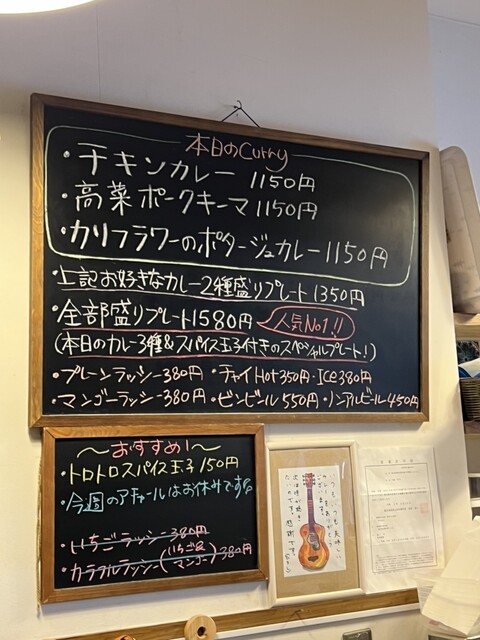 本日のCurry
・チキンカレー 1150円
・高菜ポークキーマ 1150円
・カリフラワーのポタージュカレー 1150円
・上記お好きなカレー2種盛りプレート 1350円
・全部盛りプレート1580円 人気No1!!
(本日のカレー3種&スパイス玉子付きのスペシャルプレート!)
・プレーンラッシー380円 ・チャイHot350円・Ice380円
・マンゴーラッシー380円 ・ビンビール550円・ノンアルビール450円
~おすすめ!~
・トロトロスパイス玉子 150円
・今週のアチャールはお休みです。
・いちごラッシー 380円
・カラフルラッシー(いちご&マンゴー)380円